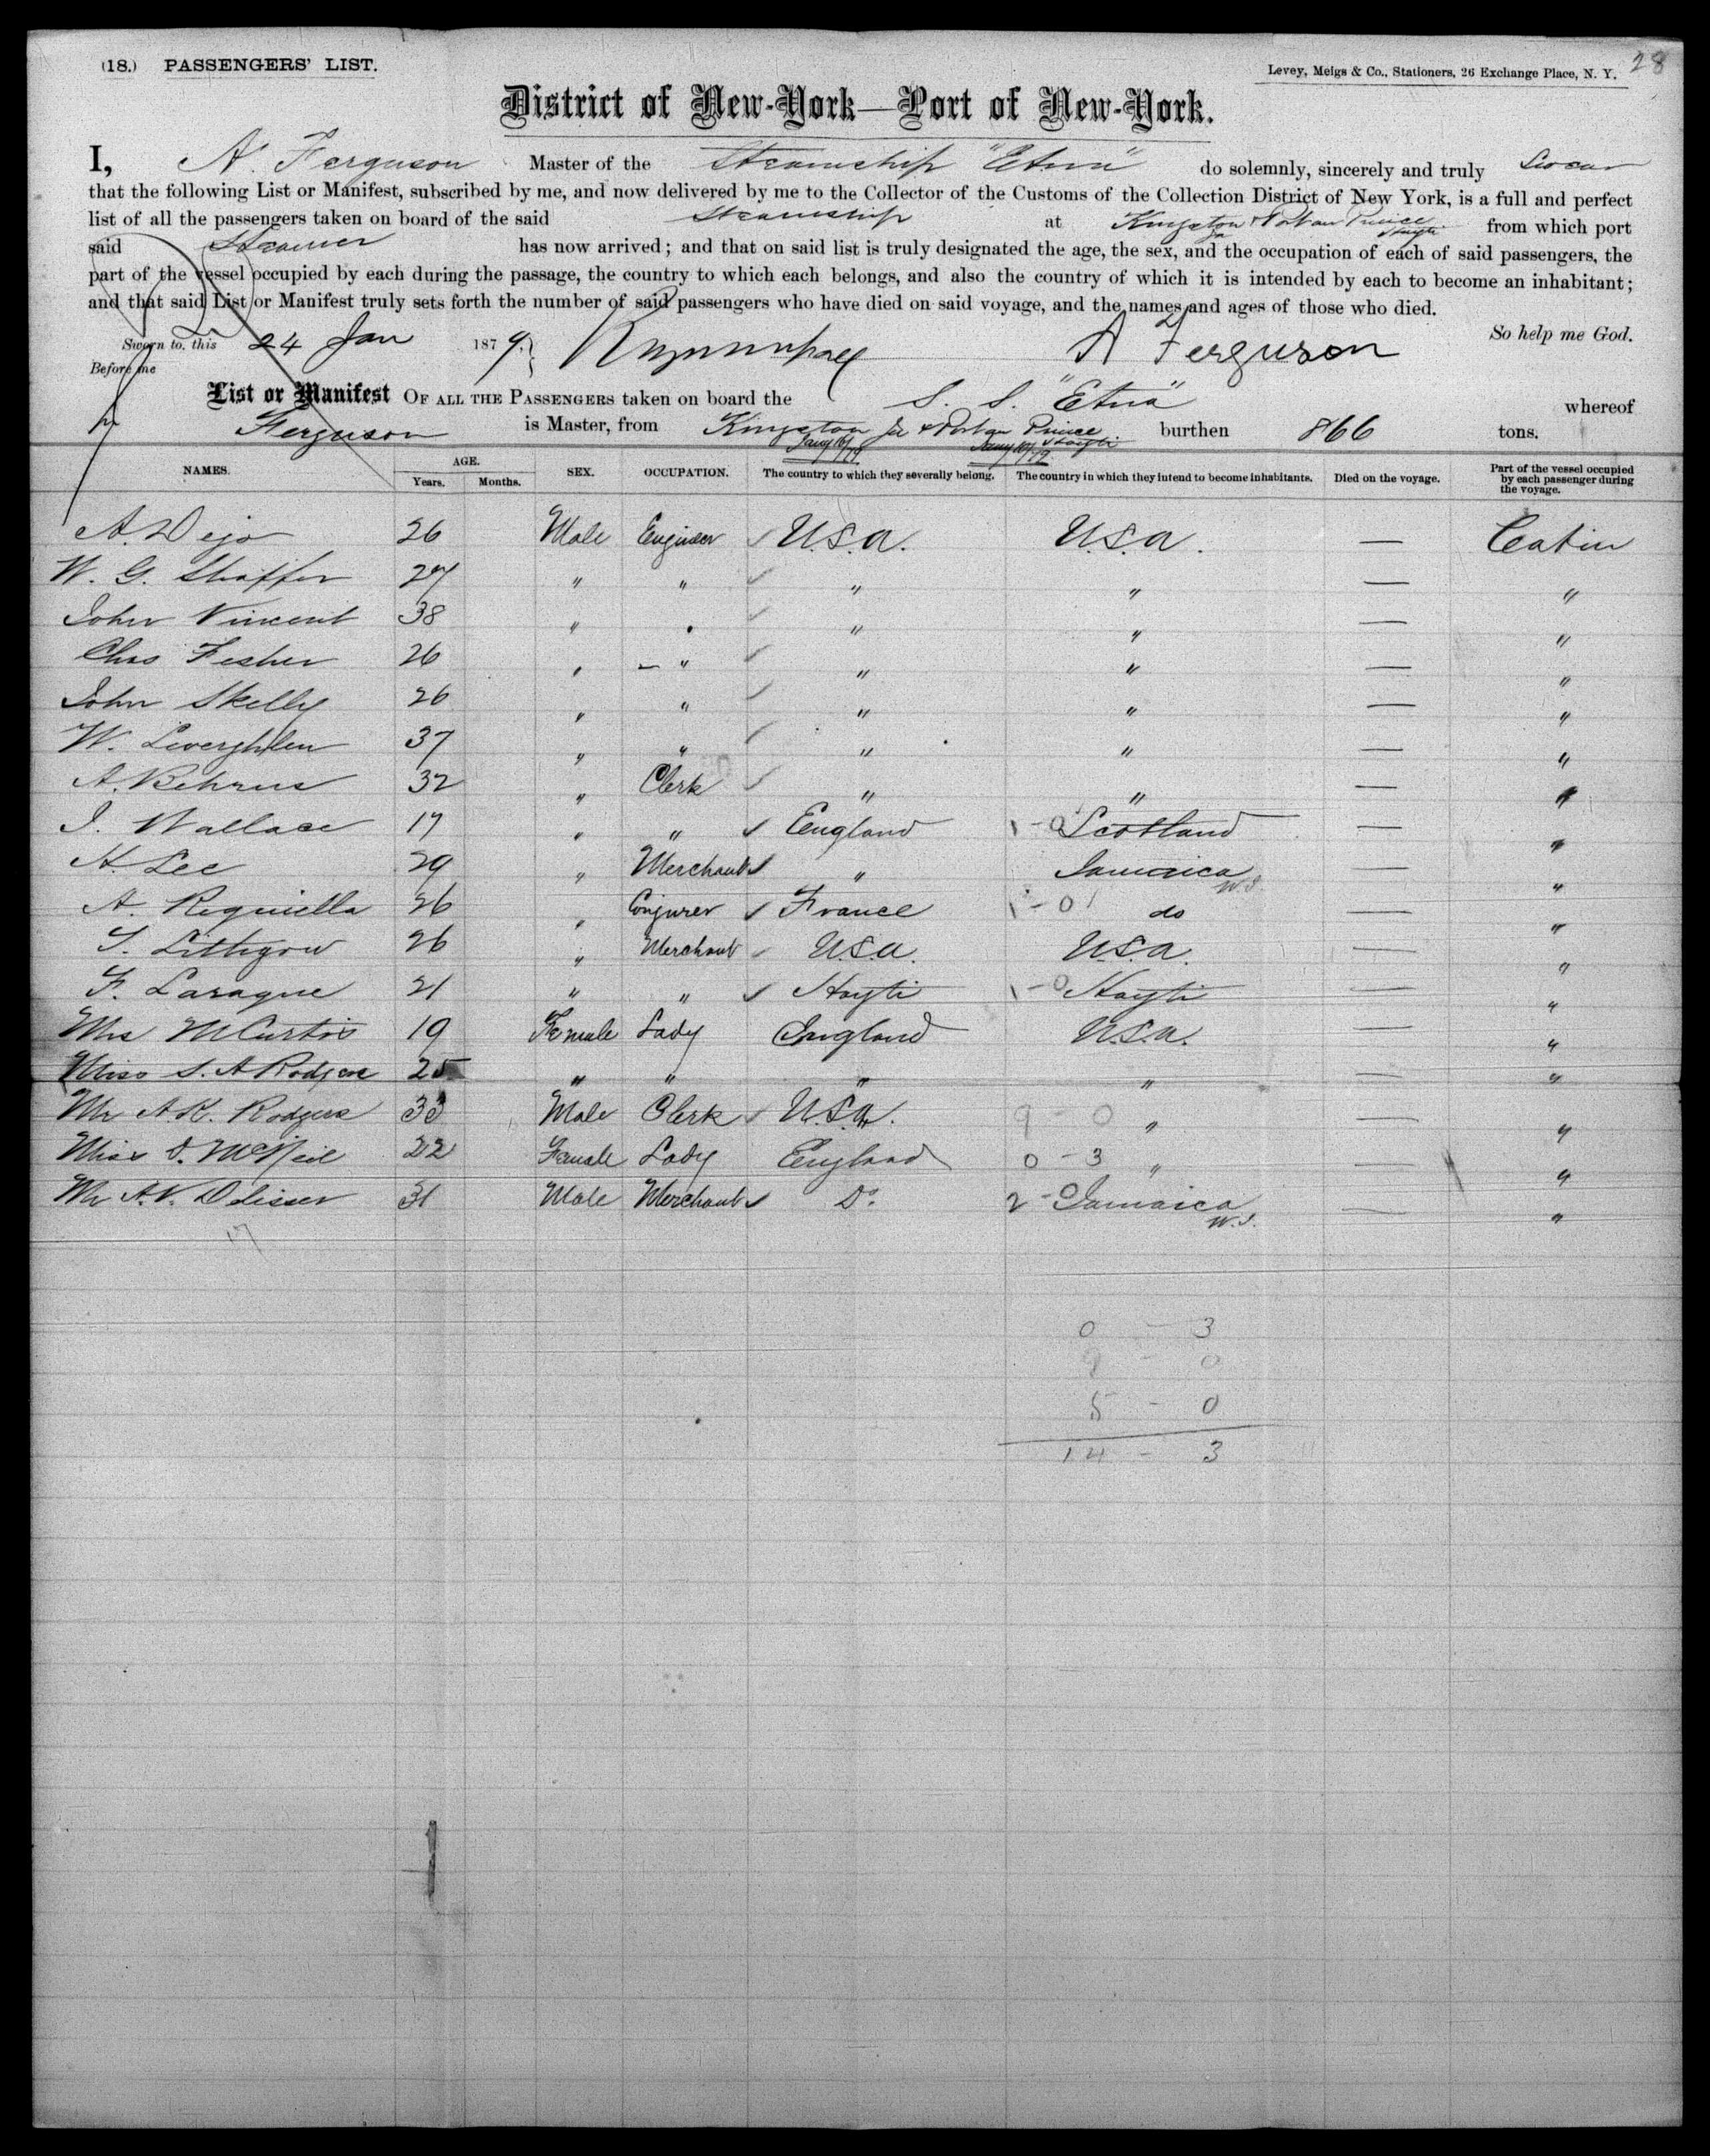 (18.) PASSENGERS' LIST.
Levey, Meigs & Co., Stationers, 26 Exchange Place, N. Y. 28
District of New-York—Port of New-York.
I, A. Ferguson Master of the Steamship "Etna" do solemnly, sincerely and truly swear
that the following List or Manifest, subscribed by me, and now delivered by me to the Collector of the Customs of the Collection District of New York, is a full and perfect
list of all the passengers taken on board of the said Steamship at Kingston Ja & Port au Prince Hayti from which port
said Steamer has now arrived; and that on said list is truly designated the age, the sex, and the occupation of each of said passengers, the
part of the vessel occupied by each during the passage, the country to which each belongs, and also the country of which it is intended by each to become an inhabitant;
and that said List or Manifest truly sets forth the number of said passengers who have died on said voyage, and the names and ages of those who died.
So help me God.
Sworn to, this 24 Jan 1879 A Ferguson
Before me
List or Manifest OF ALL THE PASSENGERS taken on board the S. S. "Etna" whereof
Ferguson is Master, from Kingston Ja & Port au Prince Hayti burthen 866 tons.
NAMES. AGE. Years. Months. SEX. OCCUPATION. The country to which they severally belong. The country in which they intend to become inhabitants. Died on the voyage. Part of the vessel occupied by each passenger during the voyage.
A. Dejo 26 Male Engineer U.S.A. U.S.A. — Cabin
W. G. Shaffer 27 " " " " — "
John Vincent 38 " " " " — "
Chas Fesher 26 " " " " — "
John Skelly 26 " " " " — "
W. 37 " " " " — "
A. Behrns 32 " Clerk " " — "
J. Wallace 17 " " England 1-0 Scotland — "
A. Lee 29 " Merchant " Jamaica W.I. — "
A. Requiella 26 " Conjurer France 1-0 do — "
S. Lithgow 26 " Merchant U.S.A. U.S.A. — "
F. Laraque 21 " " Hayti 1-0 Hayti — "
Mrs McCurtis 19 Female Lady England U.S.A. — "
Miss S. A Rodgers 25 " " " " — "
Mr A.K. Rodgers 33 Male Clerk U.S.A. 9-0 " — "
Miss D. McNeil 22 Female Lady England 0-3 " — "
Mr A.V. Delisser 31 Male Merchant Do. 2-0 Jamaica W.I. — "
17
0 - 3
9 - 0
5 - 0
14 - 3